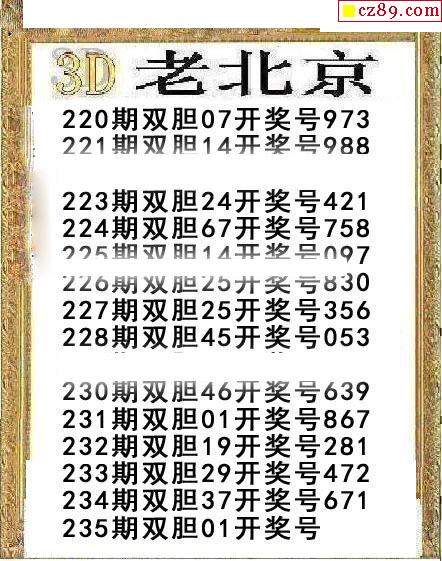 cz89.com
3D 老北京
220期双胆07开奖号973
221期双胆14开奖号988
223期双胆24开奖号421
224期双胆67开奖号758
225期双胆14开奖号097
226期双胆25开奖号830
227期双胆25开奖号356
228期双胆45开奖号053
230期双胆46开奖号639
231期双胆01开奖号867
232期双胆19开奖号281
233期双胆29开奖号472
234期双胆37开奖号671
235期双胆01开奖号